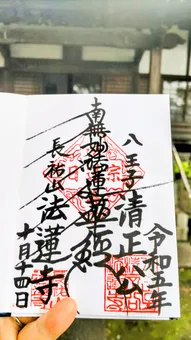 八王子清正公
南無妙法蓮華経
長祐山法蓮寺
令和五年
十月十四日